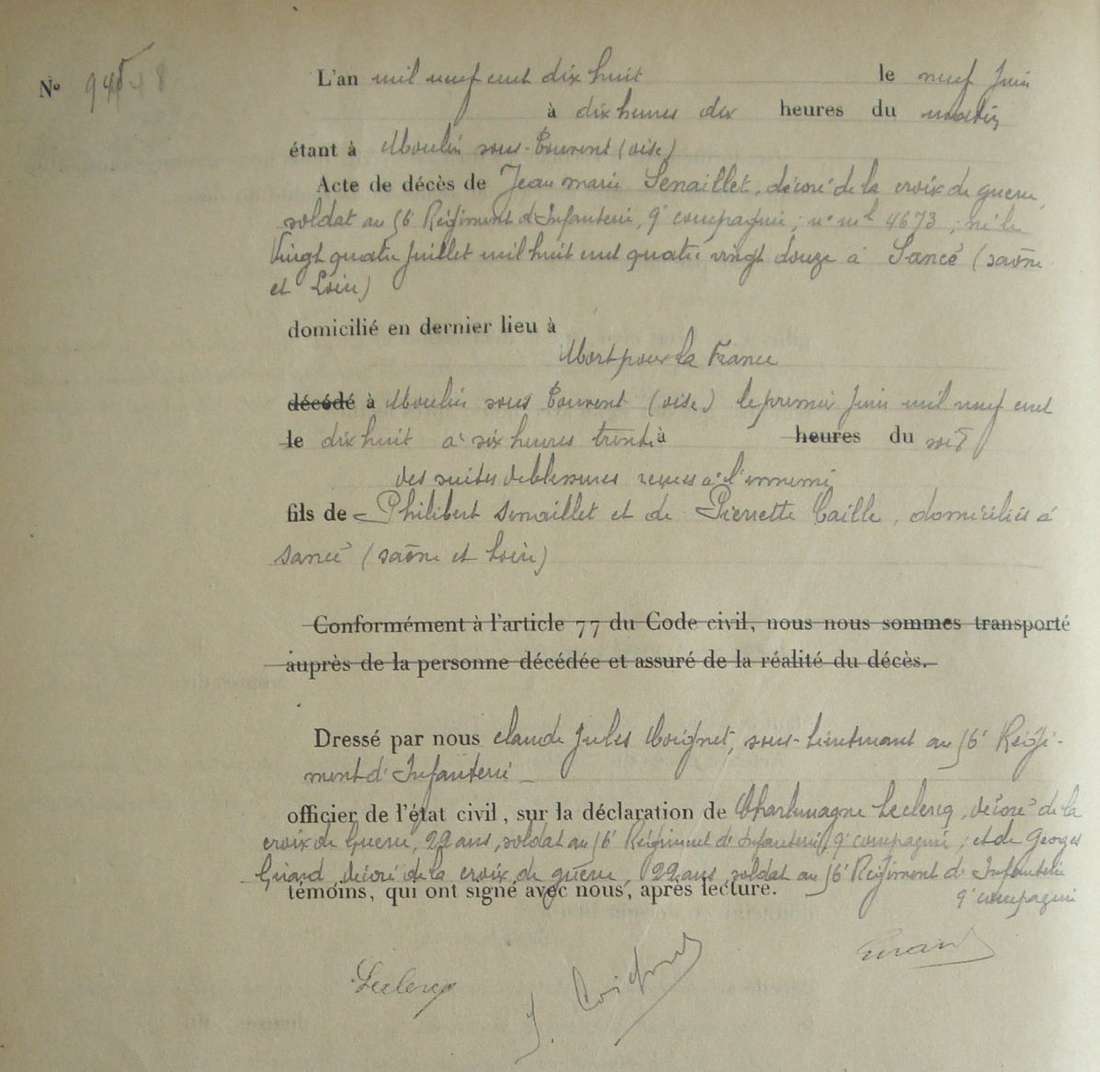 N° 945
L'an mil neuf cent dix huit le neuf Juin
à dix heures dix heures du matin
étant à Moulin sous-Touvent (oise)
Acte de décès de Jean marie Senaillet, décoré de la croix de guerre,
soldat au 56e Régiment d'Infanterie, 9e compagnie; n° ml 4673; né le
Vingt quatre Juillet mil huit cent quatre vingt douze à Sancé (saône
et Loire)
domicilié en dernier lieu à
Mort pour la France
décédé à Moulin sous Touvent (oise) le premier Juin mil neuf cent
le dix huit à six heures trente à heures du soir
des suites de blessures reçues à l'ennemi
fils de Philibert Senaillet et de Pierrette Caille, domiciliés à
Sancé (saône et Loire)
Conformément à l'article 77 du Code civil, nous nous sommes transporté
auprès de la personne décédée et assuré de la réalité du décès.
Dressé par nous Claude Jules Coignet, sous-Lieutenant au 56e Régi-
ment d'Infanterie
officier de l'état civil, sur la déclaration de Charlemagne Leclercq, décoré de la
croix de Guerre, 22 ans, soldat au 56e Régiment d'Infanterie, 9e compagnie; et de Georges
décoré de la croix de guerre, 22 ans, soldat au 56e Régiment d'Infanterie
9e compagnie
témoins, qui ont signé avec nous, après lecture.
Leclercq J. Coignet